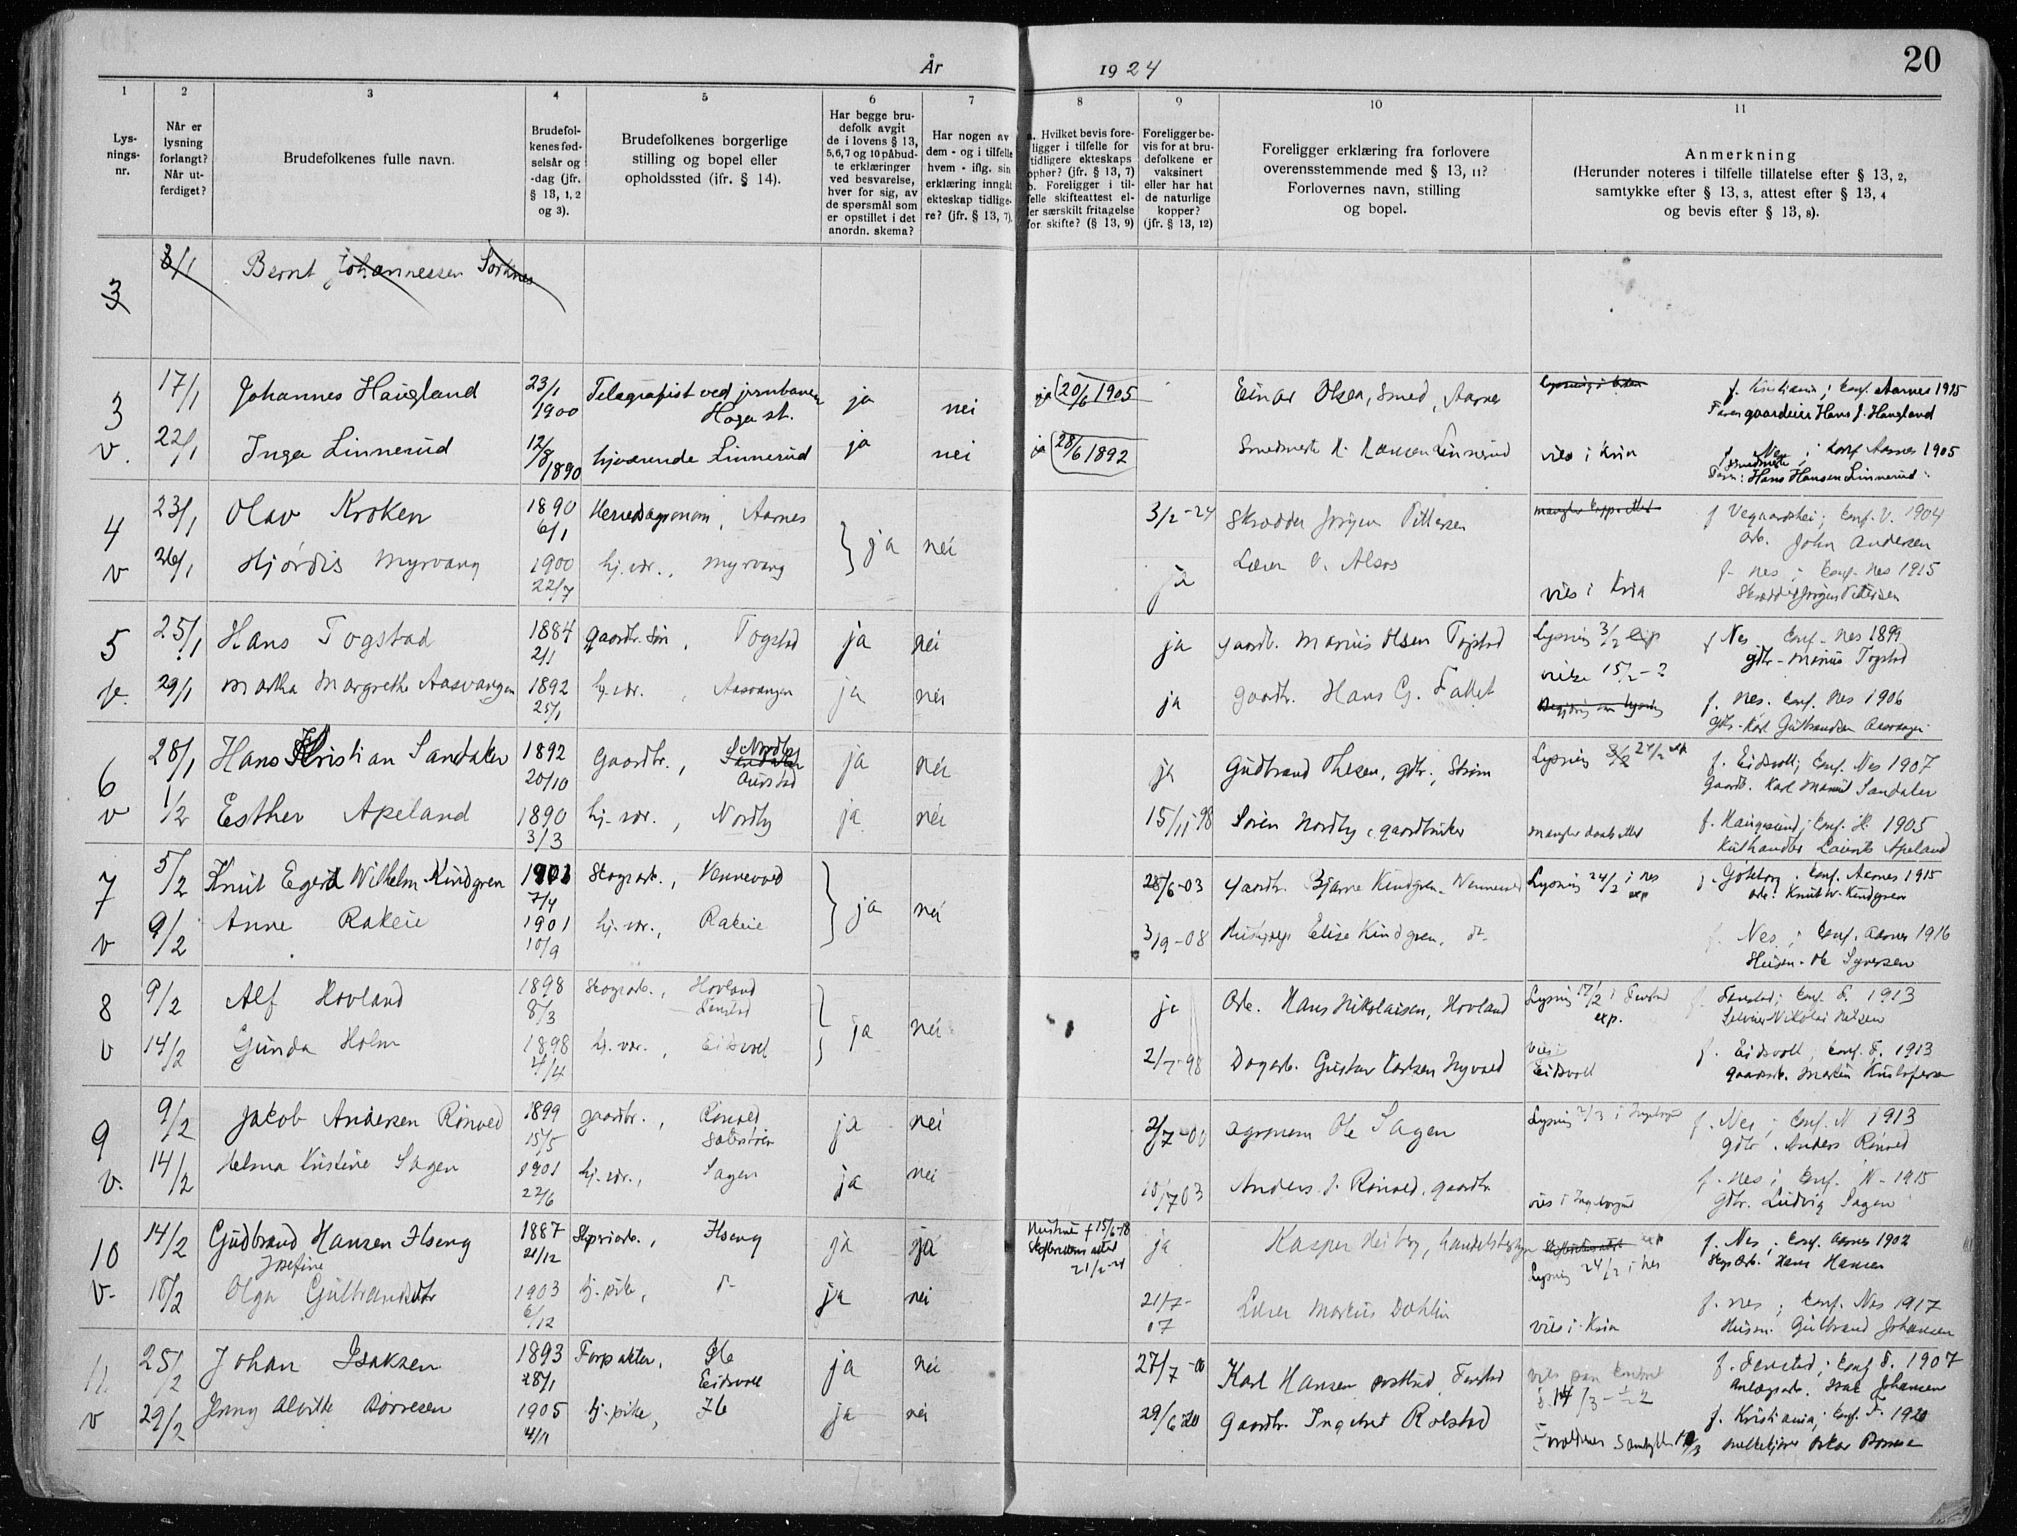 År 1924
20
1
2
3
4
5
6
7
8
9
10
11
Lys-
nings-
nr.
Når er
lysning
forlangt?
Når ut-
ferdiget?
Brudefolkenes fulle navn.
Brudefol-
kenes fød-
selsår og
-dag (jfr.
§ 13, 1, 2
og 3).
Brudefolkenes borgerlige
stilling og bopel eller
opholdssted (jfr. § 14).
Har begge bru-
defolk avgit
de i lovens § 13,
5,6,7 og 10 påbud-
te erklæringer
ved besvarelse,
hver for sig, av
de spørsmål som
er opstillet i det
anordn. skema?
Har nogen av
dem - og i tilfelle
hvem - iflg. sin
erklæring inngåt
ekteskap tidlige-
re? (jfr. § 13, 7).
a. Hvilket bevis fore-
ligger i tilfelle for
tidligere ekteskaps
ophør? (jfr. § 13, 7)
b. Foreligger i til-
felle skifteattest el-
ler særskilt fritagelse
for skifte? (§ 13, 9)
Foreligger be-
vis for at bru-
defolkene er
vaksinert
eller har hat
de naturlige
kopper?
(jfr. § 13, 12)
Foreligger erklæring fra forlovere
overensstemmende med § 13, 11?
Forlovernes navn, stilling
og bopel.
Anmerkning
(Herunder noteres i tilfelle tillatelse efter § 13, 2,
samtykke efter § 13, 3, attest efter § 13, 4
og bevis efter § 13, 8).
3 3/1 Bernt Johannessen Sorknes
3 17/1 Johannes Haugland 23/1 1900 Telegrafist ved jernbanen ja nei ja 20/6 1905 Einar Olsen, Smed, Aarnes f. Kristiania; Conf. Aarnes 1915
Haga st. Faren gaardeier Hans J. Haugland
v. 22/1 Inga Linnerud 12/8 1890 hjværende Linnerud ja nei ja 28/6 1892 Smedmester H. Hansen Linnerud vies i Kria f. Nes; Conf Aarnes 1905
smedmester
Faren: Hans Hansen Linnerud
4 23/1 Olav Kroken 1890 6/1 Herredsagronom, Aarnes ja nei 3/2-24 Skrædder Jørgen Pettersen f Vegaardshei; Conf. V. 1904
Arb. John Andersen
v 26/1 Hjördis Myrvang 1900 22/7 hj. vær., Myrvang ja Lærer O. Alsos vies i Kria f. Nes; Conf. Nes 1915
Skrædder Jørgen Pettersen
5 25/1 Hans Togstad 1884 2/1 gaardbr. søn, Togstad ja nei ja gaardb. Marius Olsen Togstad Lysning 3/2 exp f Nes Conf. Nes 1899
vielse 15/2-? gdbr. Marius Togstad
v. 29/1 Martha Margrethe Aasvangen 1892 25/1 hj. vær., Aasvangen ja nei ja gaardbr. Hans G. Fallet f. Nes. Conf. Nes 1906
Gdbr. Karl Gulbrandsen Aasvangen
6 28/1 Hans Kristian Sandaker 1892 20/10 Gaardbr., Nordby ja nei ja Gudbrand Thesen, gdbr., Strøm Lysning 24/2 exp f. Eidsvoll; Conf. Nes 1907
Aurstad Gaardb. Karl Marius Sandaker
v 1/2 Esther Apeland 1890 3/3 hj. vær., Nordby ja nei 15/11-98 Søren Nordby, gaardbruker mangler daabsattest f. Haugesund; Conf. H. 1905
7 5/2 Knut Egert Wilhelm Kindgren 7/4 Skogsarb., Vennevold ja nei 28/6-03 gaardbr. Bjarne Kindgren, Vennevold Lysning 24/2 i Nes exp f. Göteborg; Conf. Aarnes 1915
Arb. Knut W. Kindgren
v 9/2 Anne Rakeie 1901 10/9 hj. vær., Rakeie 3/9-08 Elise Kindgren, do f. Nes; Conf. Aarnes 1916
Husm. Ole Syversen
8 9/2 Alf Hovland 1898 8/3 Skogsarb., Hovland ja nei ja Arb. Hans Nikolaisen, Hovland Lysning 17/2 i Fenstad f. Fenstad; Conf. F. 1913
Fenstad exp. Selveier Nikolai Nilsen
v 14/2 Gunda Holm 1898 4/4 hj. vær., Eidsvoll 2/7-98 Dagarb. Gustav Karlsen Nyvold vies i f. Eidsvoll; Conf. F. 1913
Eidsvoll gaardarb. Martin Kristofersen
9 9/2 Jakob Andersen Rönved 1899 15/5 gaardbr., Rønved ja nei 2/7-00 agronom Ole Sagen Lysning 2/3 f. Nes; Conf. N. 1913
gdbr. Anders Rönved
v. 14/2 Helma Kristine Sagen 1901 22/6 hj. vær., Sagen ja nei 10/7 03 Anders J. Rönved, gaardbr. vies i f. Nes; Conf. N. 1915
gdbr. Ludvig Sagen
10 14/2 Gudbrand Hansen Ilseng 1887 21/12 Ilseng ja ja Hustrue + 15/6-18 ja Kasper Heiberg, handelsbestyrer exp f. Nes; Conf. Aarnes 1902
Josefine 21/2-24 Lysning 24/2 i Nes Skogsarb. Hans Hansen
v. 18/2 Olga Gulbrandsdtr 1903 6/12 hj. pike, do ja nei 21/7-07 Lærer Markus Dæhlin vies i Kria f. Nes; Conf. Nes 1917
Husm. Gulbrand Johansen
11 25/2 Johan Isaksen 1893 28/1 Forpakter, ja nei 27/7-00 Karl Hansen postbud, Fenstad f. Fenstad; Conf F. 1907
Eidsvoll Anlægsarb. Isak Johansen
v 29/2 Jenny Alvilde Børresen 1905 4/11 hj. pike, ja nei 29/6 20 Gaardbr. Ingebret Rolstad Forældrenes Samtykke f. Kristiania; Conf. F. 1920